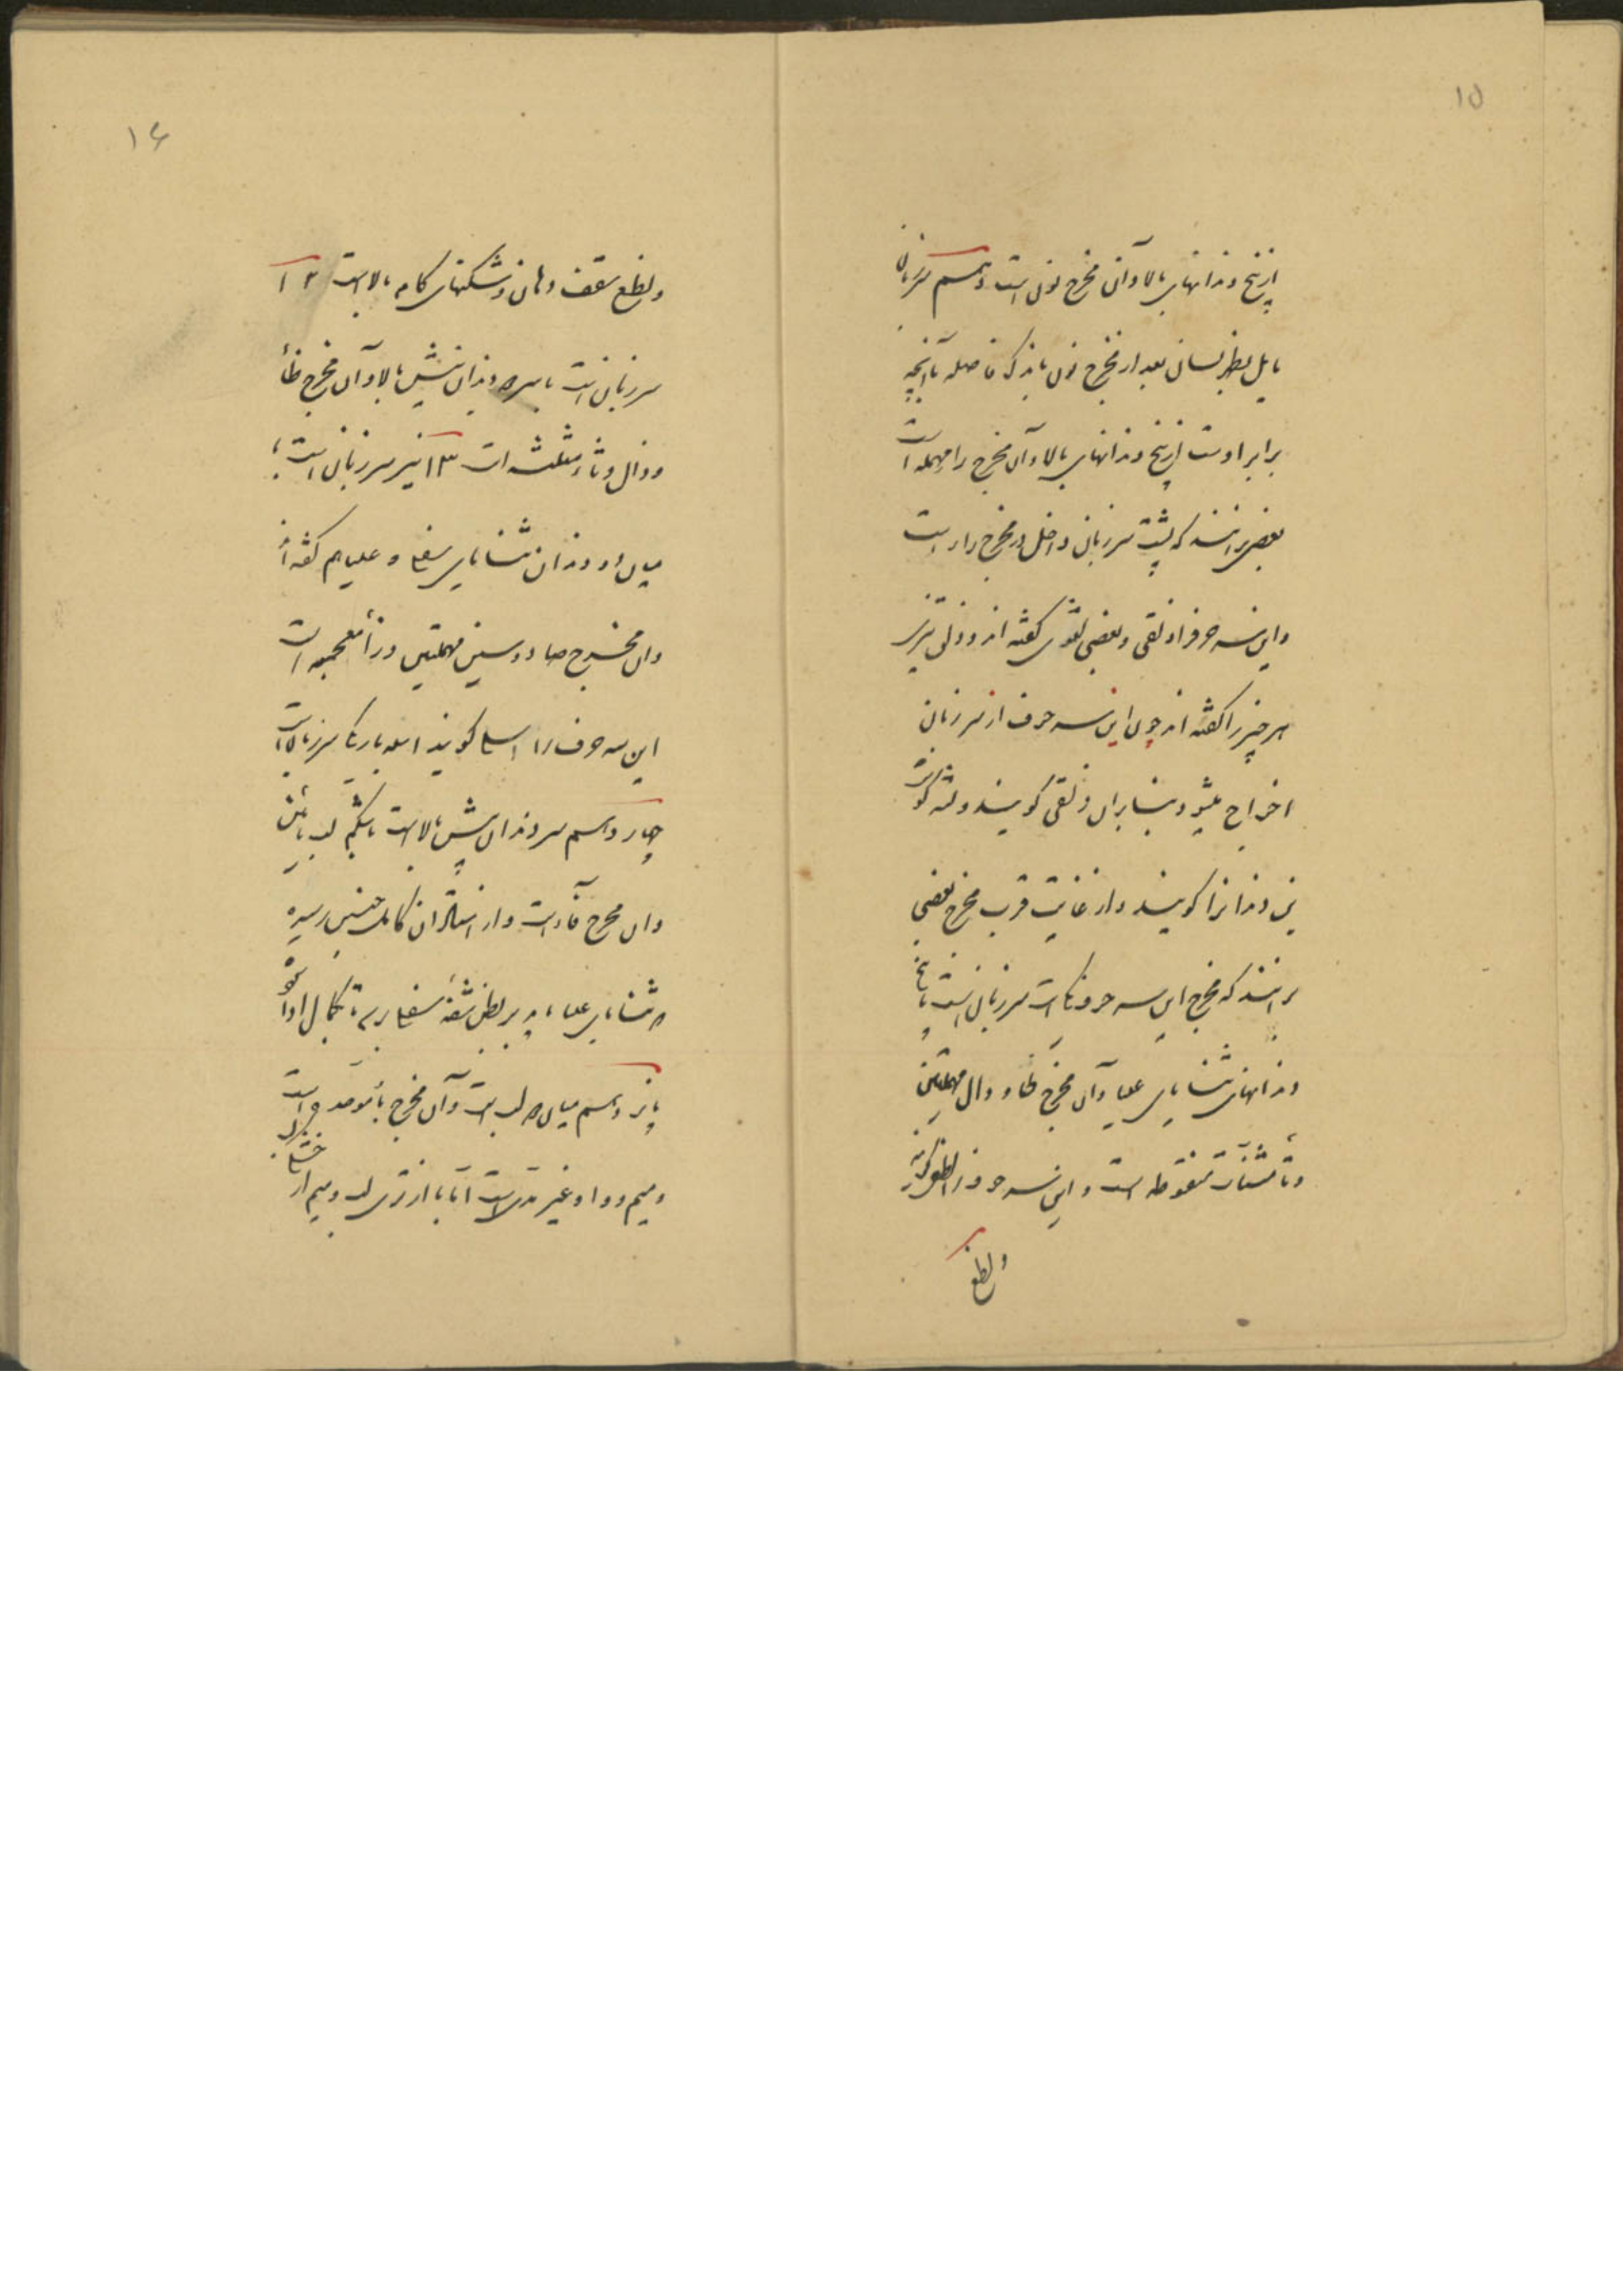 ۱۵
از بیخ دندانهای بالا و آن مخرج نون است دهم سر زبان
مایل بظهر لسان بعد از مخرج نون باندک فاصله با آنچه
برابر اوست از بیخ دندانهای بالا و آن مخرج را مهمله است
بعضی برانند که پشت سر زبان داخل در مخرج راء است
و این سه حرف را ذلقی و بعضی لثوی گفته اند و ذلق تیزی
هر چیز را گفته اند چون این سه حرف از سر زبان
اخراج میشود بنابران ذلقی گویند و لثه گوشت
بن دندانرا گویند و از غایت قرب مخرج بعضی
برانند که مخرج این سه حرف یک است سر زبان است با بیخ
دندانهای ثنایای علیا و آن مخرج طا و دال مهملتین
و تا مثنات منقوطه است و این سه حرف را نطعی گویند
و نطع
۱۶
و نطع سقف دهان و شکنهای کام بالاست ۱۲
سر زبان است با سر دو دندان پیش بالا و آن مخرج ظاء
و ذال و ثاء مثلثه است ۱۳ نیز سر زبان است با
میان دو دندان ثنایای سفلی و علیا هم گفته اند
و آن مخرج صاد و سین مهملتین و زاء معجمه است
این سه حرف را اسلی گویند اسله باریکی سر زبان است
چهاردهم سر دندان پیش بالاست با شکم لب پائین
و آن مخرج فاء است و از استادان کامل چنین رسیده
ثنایای علیا باید بر بطن شفهٔ سفلی رسد تا بکمال ادا شود
پانزدهم میان دو لب است و آن مخرج باء موحده است
و میم و واو غیر مدی است اما با از تری لب و میم از
خشکی لب